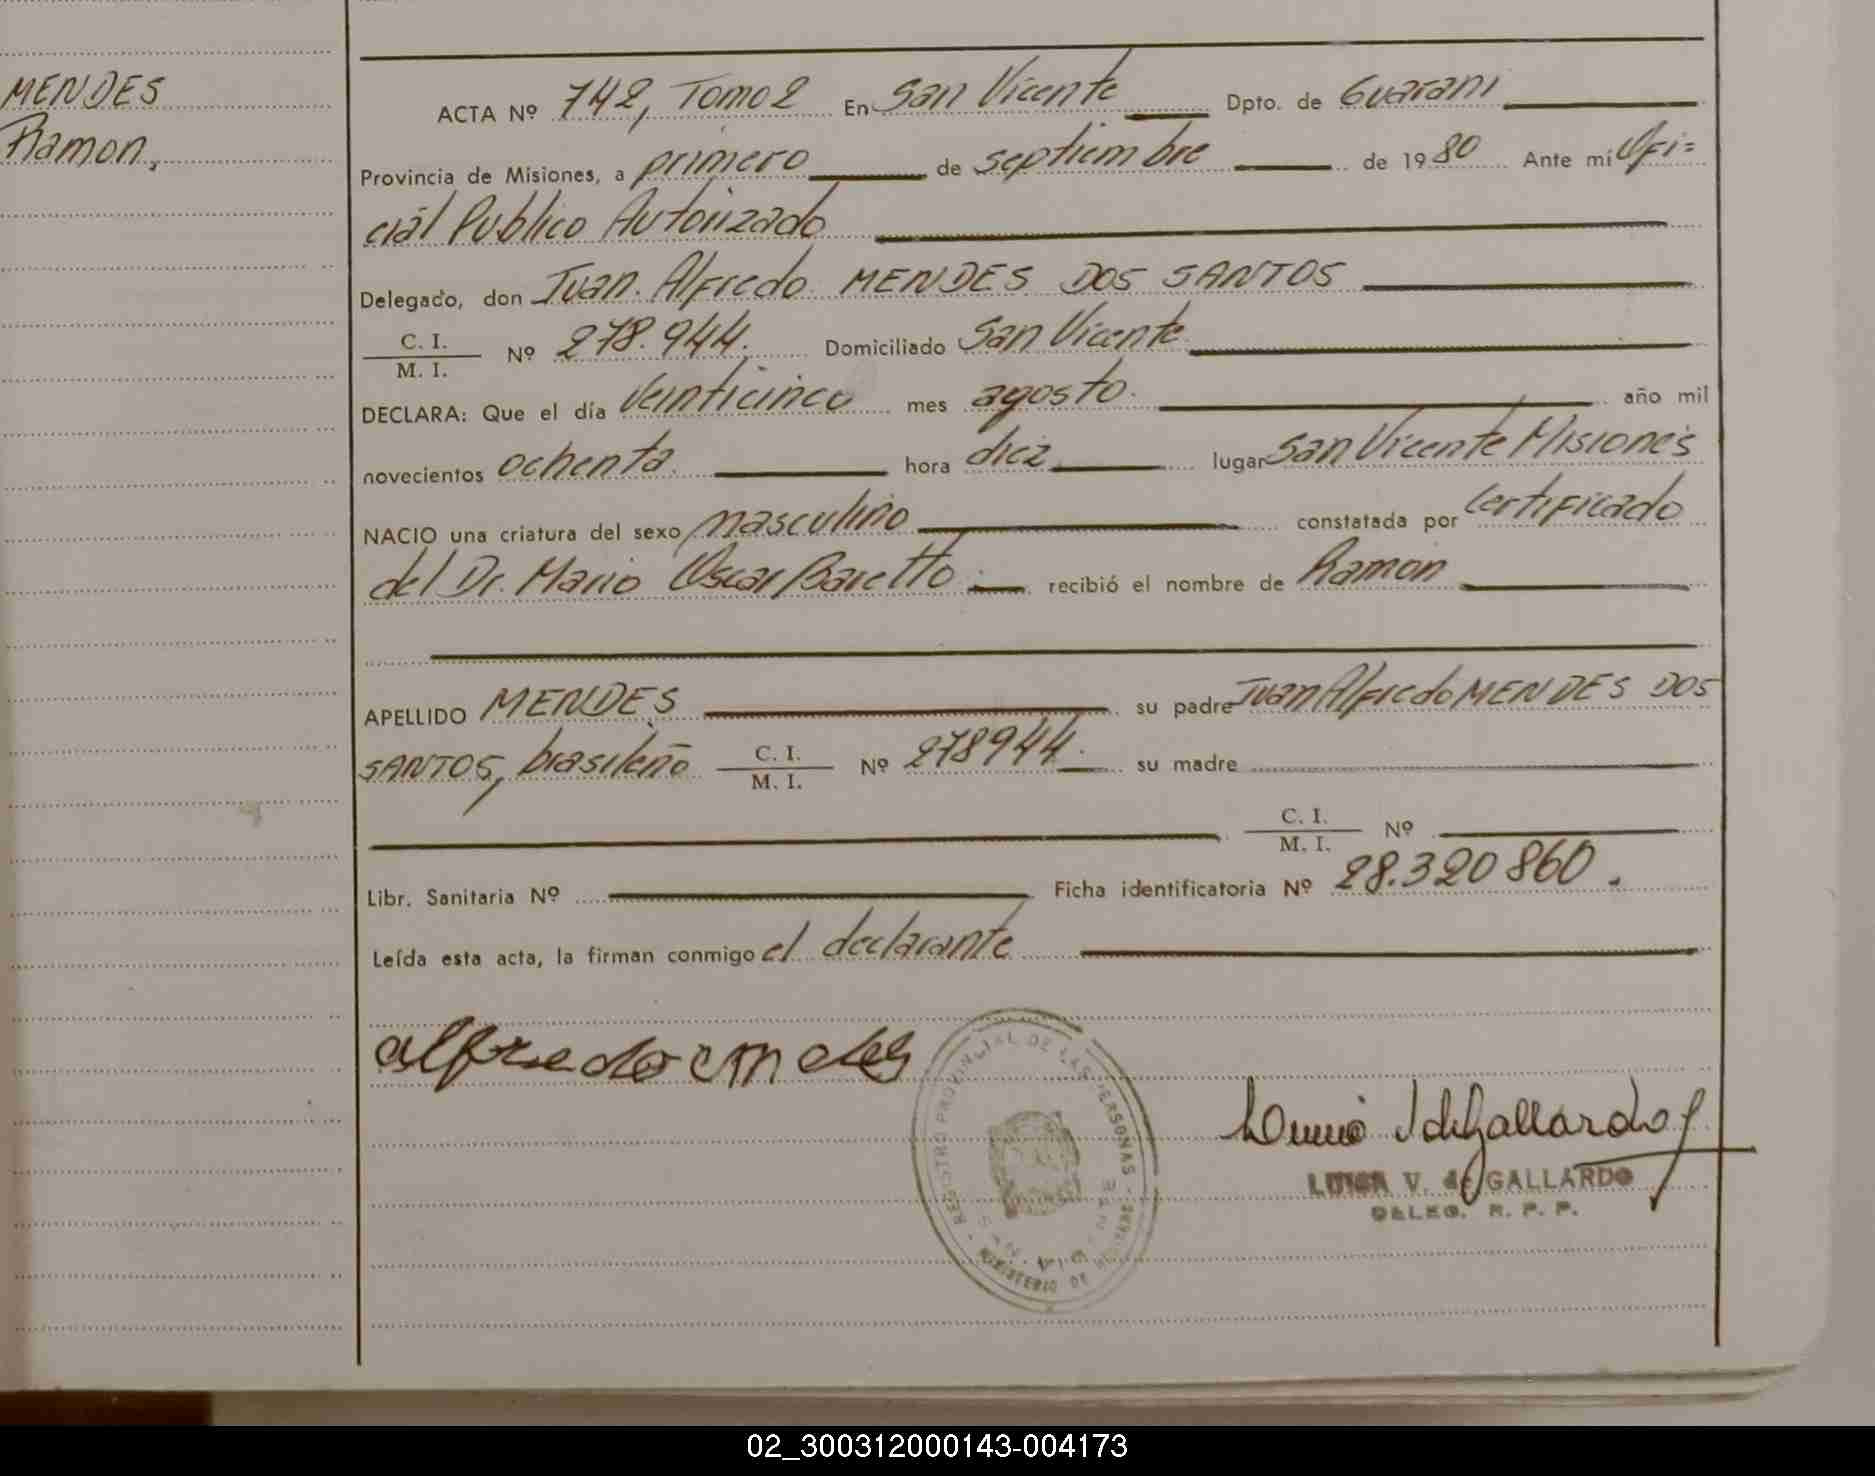 MENDES
Ramon,
ACTA Nº 742, Tomo 2 En San Vicente Dpto. de Guarani
Provincia de Misiones, a primero de septiembre de 1980 Ante mí Ofi=
cial Publico Autorizado
Delegado, don Juan Alfredo MENDES DOS SANTOS
C. I.
M. I. Nº 278.944. Domiciliado San Vicente
DECLARA: Que el día veinticinco mes agosto. año mil
novecientos ochenta hora diez lugar San Vicente Misiones
NACIO una criatura del sexo masculino constatada por certificado
del Dr. Mario Oscar Baretto recibió el nombre de Ramon
APELLIDO MENDES su padre Juan Alfredo MENDES DOS
SANTOS, brasileño C. I.
M. I. Nº 278944. su madre
C. I.
M. I. Nº
Libr. Sanitaria Nº Ficha identificatoria Nº 28.320860.
Leída esta acta, la firman conmigo el declarante
alfredo mendes
REGISTRO PROVINCIAL DE LAS PERSONAS
MINISTERIO DE
V. de GALLARDO
DELEG. R. P. P.
02_300312000143-004173